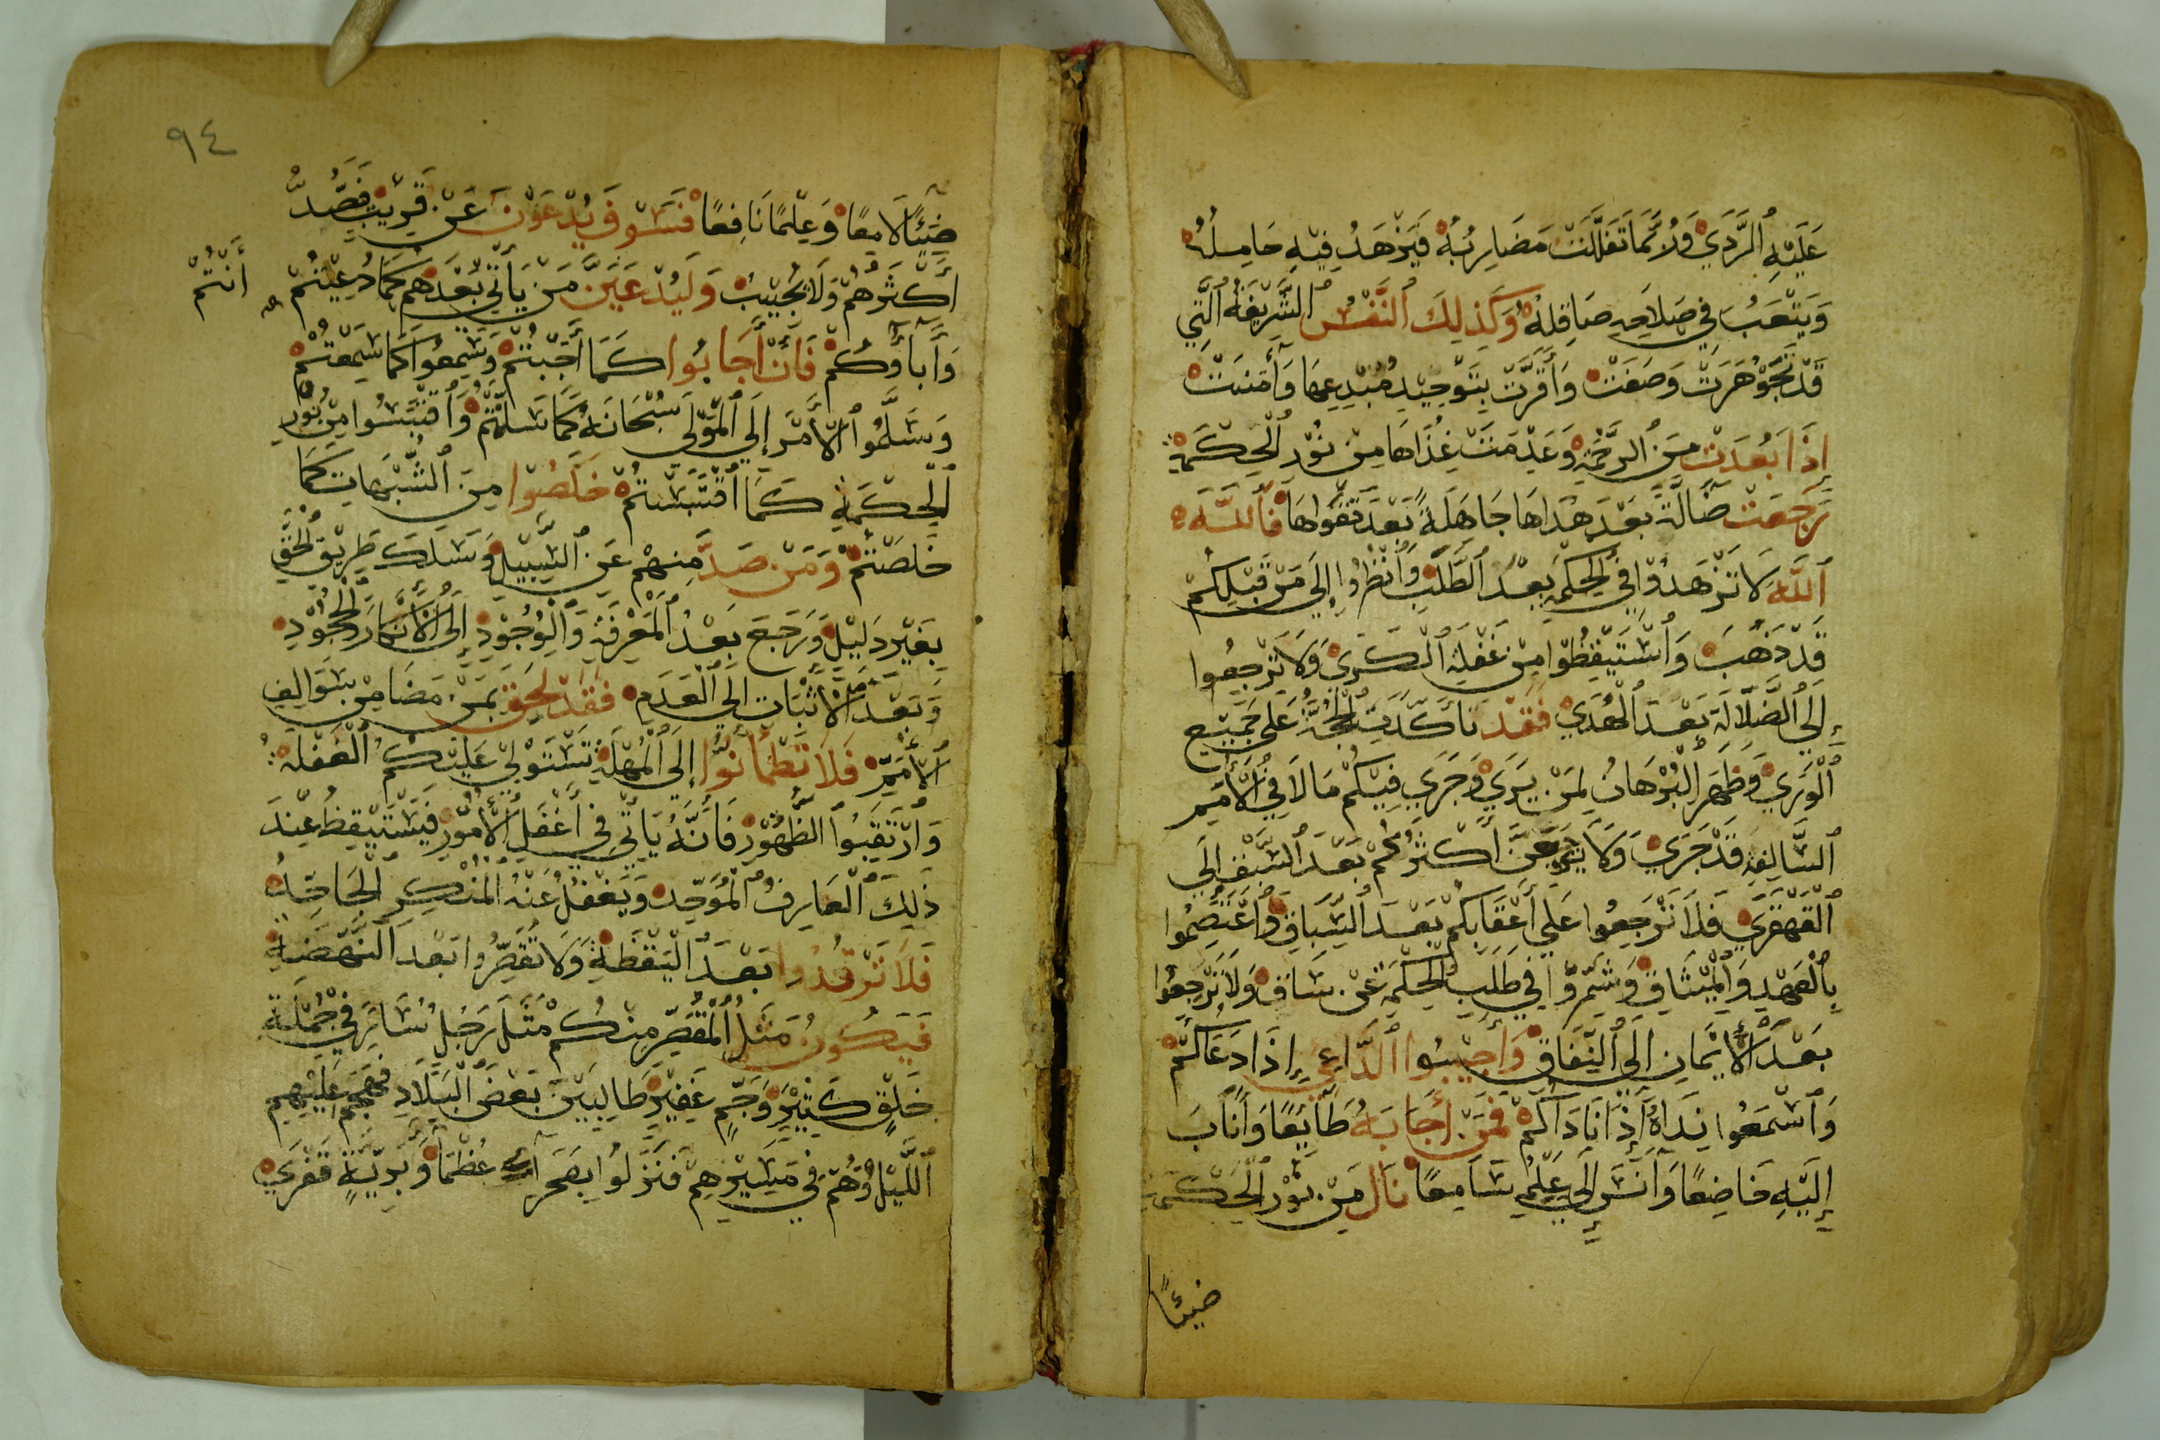 عَلَيْهِ الرَّدَي وَرُبَّمَا تَفَلَّلَتْ مَضَارِبُهُ فَيَزْهَدُ فِيْهِ حَامِلُهُ
وَيَتْعَبُ فِي صَلَاحِهِ صَاقِلِهُ وَكَذلِكَ النَّفْسُ الشَّرِيْفَةُ الَّتِي
قَدْ تَجَوْهَرَتْ وَصَفَتْ وَأَقَرَّتْ بِتَوْحِيْدِ مُبْدِعِهَا وَآمَنَتْ
إِذَا بَعُدَتْ مِنَ الرَّحْمَةِ وَعَدِمَتْ غِذَاهَا مِنْ نُوْرِ الْحِكْمَةِ
رَجَعَتْ ضَآلَّةً بَعْدَ هُدَاهَا جَاهِلَةً بَعْدَ تَقْوَاهَا فَاللَّهَ
اللَّهَ لَا تَزْهَدُوْا فِي الْحِكْمَةِ بَعْدَ الطَّلَبِ وَانْظُرُوا إِلَي مَنْ قَبْلِكُمْ
قَدْ ذَهَبَ وَاسْتَيْقِظُوْا مِنْ غَفْلَةِ الْكَرَي وَلَا تَرْجِعُوا
إِلَي الضَّلَالَةِ بَعْدَ الْهُدَي فَقَدْ تَأَكَّدَتِ الْحُجَّةُ عَلَي جَمِيْعِ
الْوَرَي وَظَهَرَ الْبُرْهَانُ لِمَنْ يَرَي وَجَرَي فِيْكُمْ مَا لَا فِي الْأُمَمِ
السَّالِفَةِ قَدْ جَرَي وَلَا يَرْجِعَنَّ أَكْثَرُكُمْ بَعْدَ السَّبْقِ إِلَي
الْقَهْقَرَي فَلَا تَرْجِعُوا عَلَي أَعْقَابِكُمْ بَعْدَ السِّبَاقِ وَاعْتَصِمُوا
بِالْعَهْدِ وَالْمِيْثَاقِ وَشَمِّرُوْا فِي طَلَبِ الْحِكْمَةِ عَنْ سَاقٍ وَلَا تَرْجِعُوا
بَعْدَ الْأِيْمَانِ إِلَي النِّفَاقِ وَأَجِيْبُوا الدَّاعِيَ إِذَا دَعَاكُمْ
وَاسْمَعُوا نِدَاهُ إِذَا نَادَاكُمْ فَمَنْ أَجَابَهُ طَآيِعًا وَأَنَابَ
إِلَيْهِ خَاضِعًا وَأَنَسَ إِلَي عِلْمِهِ سَامِعًا نَالَ مِنْ نُوْرِ الْحِكْمَةِ
ضيئًا
٩٤
ضَيْئًا لَامِعًا وَعِلْمًا نَافِعًا فَسَوْفَ يُدْعَوْنَ عَنْ قَرِيْبٍ فَيَصُدُّ
أَكْثَرُهُمْ وَلَا يُجِيْبُ وَلَيُدْعَيَنَّ مَنْ يَأْتِي بَعْدَهُمْ كَمَا دُعِيْتُمْ أَنْتُمْ
وَآبَآؤُكُمْ فَأِنْ أَجَابُوا كَمَا أَجَبْتُمْ وَسَمِعُوا كَمَا سَمِعْتُمْ
وَسَلَّمُوا الْأَمْرَ إِلَي الْمَوْلَي سُبْحَانَهُ كَمَا سَلَّمْتُمْ وَاقْتَبَسُوا مِنْ نُوْرِ
الْحِكْمَةِ كَمَا اقْتَبَسْتُمْ خَلَصُوْا مِنَ الشُّبْهَاتِ كَمَا
خَلَصْتُمْ وَمَنْ صَدَّ مِنْهُمْ عَنِ السَّبِيْلِ وَسَلَكَ طَرِيْقَ الْحَقِّ
بِغَيْرِ دَلِيْلٍ وَرَجَعَ بَعْدَ الْمَعْرِفَةِ وَالْوُجُوْدِ إِلَي الْأِنْكَارِ وَالْجُحُوْدِ
وَبَعْدَ الْأِثْبَاتِ إِلَي الْعَدَمِ فَقَدْ لَحِقَ بِمَنْ مَضَا مِنْ سَوَالِفِ
الْأُمَمِ فَلَا تَطْمَأِنُّوا إِلَي الْمُهْلَةِ تَسْتَوْلِيْ عَلَيْكُمُ الْغَفْلَةُ
وَارْتَقِبُوا الظُّهُوْرَ فَأَنَّهُ يَأْتِي فِي أَغْفَلِ الْأُمُوْرِ فَيَسْتَيْقِظُ عِنْدَ
ذَلِكَ الْعَارِفُ الْمُوَحِّدُ وَيَغْفُلُ عَنْهُ الْمُنْكِرُ الْجَاحِدُ
فَلَا تَرْقُدُوا بَعْدَ الْيَقْظَةِ وَلَا تُقَصِّرُوا بَعْدَ النَّهْضَةِ
فَيَكُونُ مَثَلُ الْمُقَصِّرِ مِنْكُمْ مَثَلَ رَجُلٍ سَارَ فِي جُمْلَةِ
خَلْقٍ كَثِيْرٍ وَجَمٍّ غَفِيْرٍ طَالِبِيْنَ بَعْضَ الْبِلَادِ فَهَجَمَ عَلَيْهِمِ
اللَّيْلُ وَهُمْ فِي مَسِيْرِهِمْ فَنَزَلُوا بِصَحْرَآءَ عُظْمَا وَبَرِّيَّةٍ قَفْرَي